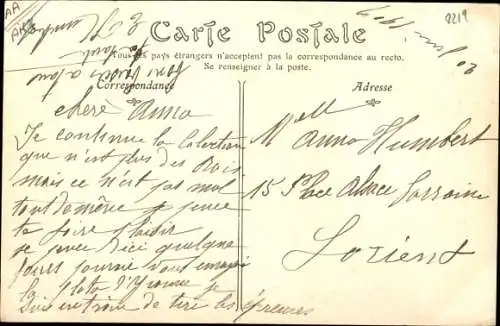 AA
AK
2219
Carte Postale
Tous les pays étrangers n'acceptent pas la correspondance au recto.
Se renseigner à la poste.
Correspondance
Adresse
chère Anna
Je continue la Colection
que n'est plus des Rois
mais ce n'est pas mal
tout de même je pense
te faire plaisir
je pense d'ici quelque
jours pouvoir vous envoyer
la photo d'Yvonne je
suis en train de tiré les épreuves
Melle
Anna Humbert
15 Place Alsace Lorraine
Lorient